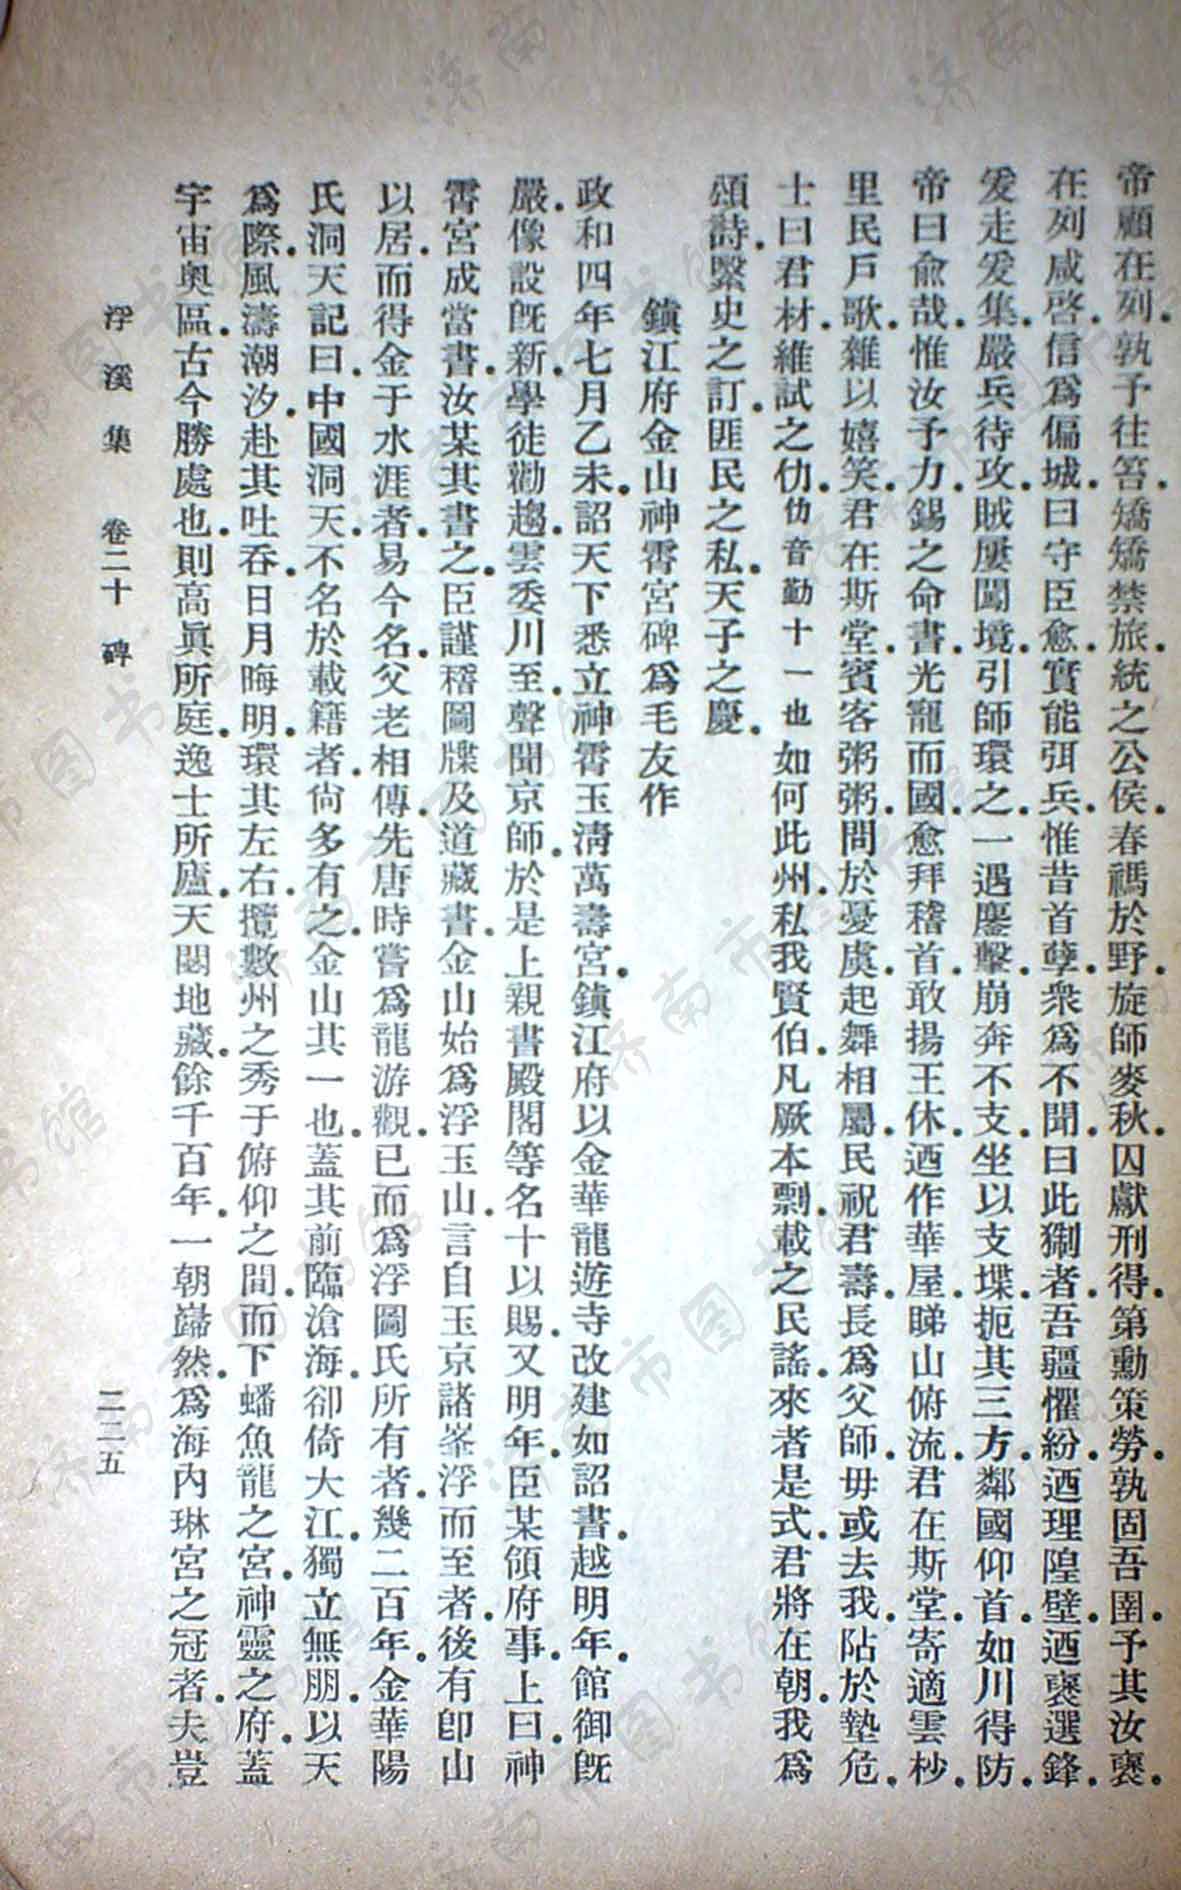 帝顧在列孰予往笞矯矯禁旅統之公侯春禡於野旋師麥秋囚獻刑得第勳策勞孰固吾圉予其汝襃
在列咸啓信爲偏城曰守臣愈實能弭兵惟昔首孽衆爲不聞曰此猘者吾疆懼紛迺理隍壁迺襃選鋒
爰走爰集嚴兵待攻賊屢闖境引師環之一遇鏖擊崩奔不支坐以支堞扼其三方鄰國仰首如川得防
帝曰兪哉惟汝予力錫之命書光寵而國愈拜稽首敢揚王休迺作華屋睇山俯流君在斯堂寄適雲杪
里民戶歌雜以嬉笑君在斯堂賓客粥粥問於憂虞起舞相屬民祝君壽長爲父師毋或去我阽於墊危
士曰君材維試之仂仂音勤十一也如何此州私我賢伯凡厥本剽載之民謠來者是式君將在朝我爲
頌詩繫史之訂匪民之私天子之慶
鎭江府金山神霄宮碑爲毛友作
政和四年七月乙未詔天下悉立神霄玉淸萬壽宮鎭江府以金華龍遊寺改建如詔書越明年館御旣
嚴像設旣新學徒勸趨雲委川至聲聞京師於是上親書殿閣等名十以賜又明年臣某領府事上曰神
霄宮成當書汝某其書之臣謹稽圖牒及道藏書金山始爲浮玉山言自玉京諸峯浮而至者後有卽山
以居而得金于水涯者易今名父老相傳先唐時嘗爲龍游觀已而爲浮圖氏所有者幾二百年金華陽
氏洞天記曰中國洞天不名於載籍者尙多有之金山其一也蓋其前臨滄海卻倚大江獨立無朋以天
爲際風濤潮汐赴其吐吞日月晦明環其左右攬數州之秀于俯仰之間而下蟠魚龍之宮神靈之府蓋
宇宙奧區古今勝處也則高眞所庭逸士所廬天閟地藏餘千百年一朝巋然爲海內琳宮之冠者夫豈
浮溪集 卷二十 碑 二二五